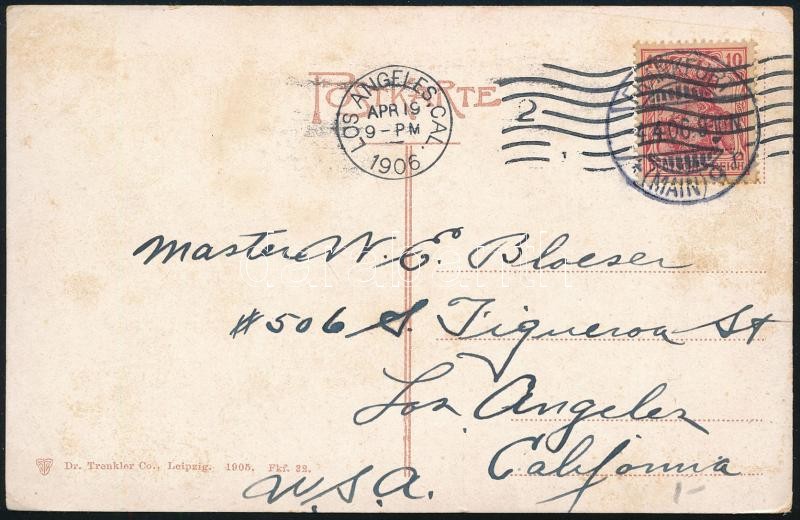 POSTKARTE
LOS ANGELES, CAL.
APR 19
9-PM
1906
2
10
(MAIN)
Master W. E. Bloeser
#506 S. Figueroa St
Los Angeles
California
U.S.A.
Dr. Trenkler Co., Leipzig. 1905. Fkf. 32.
1-